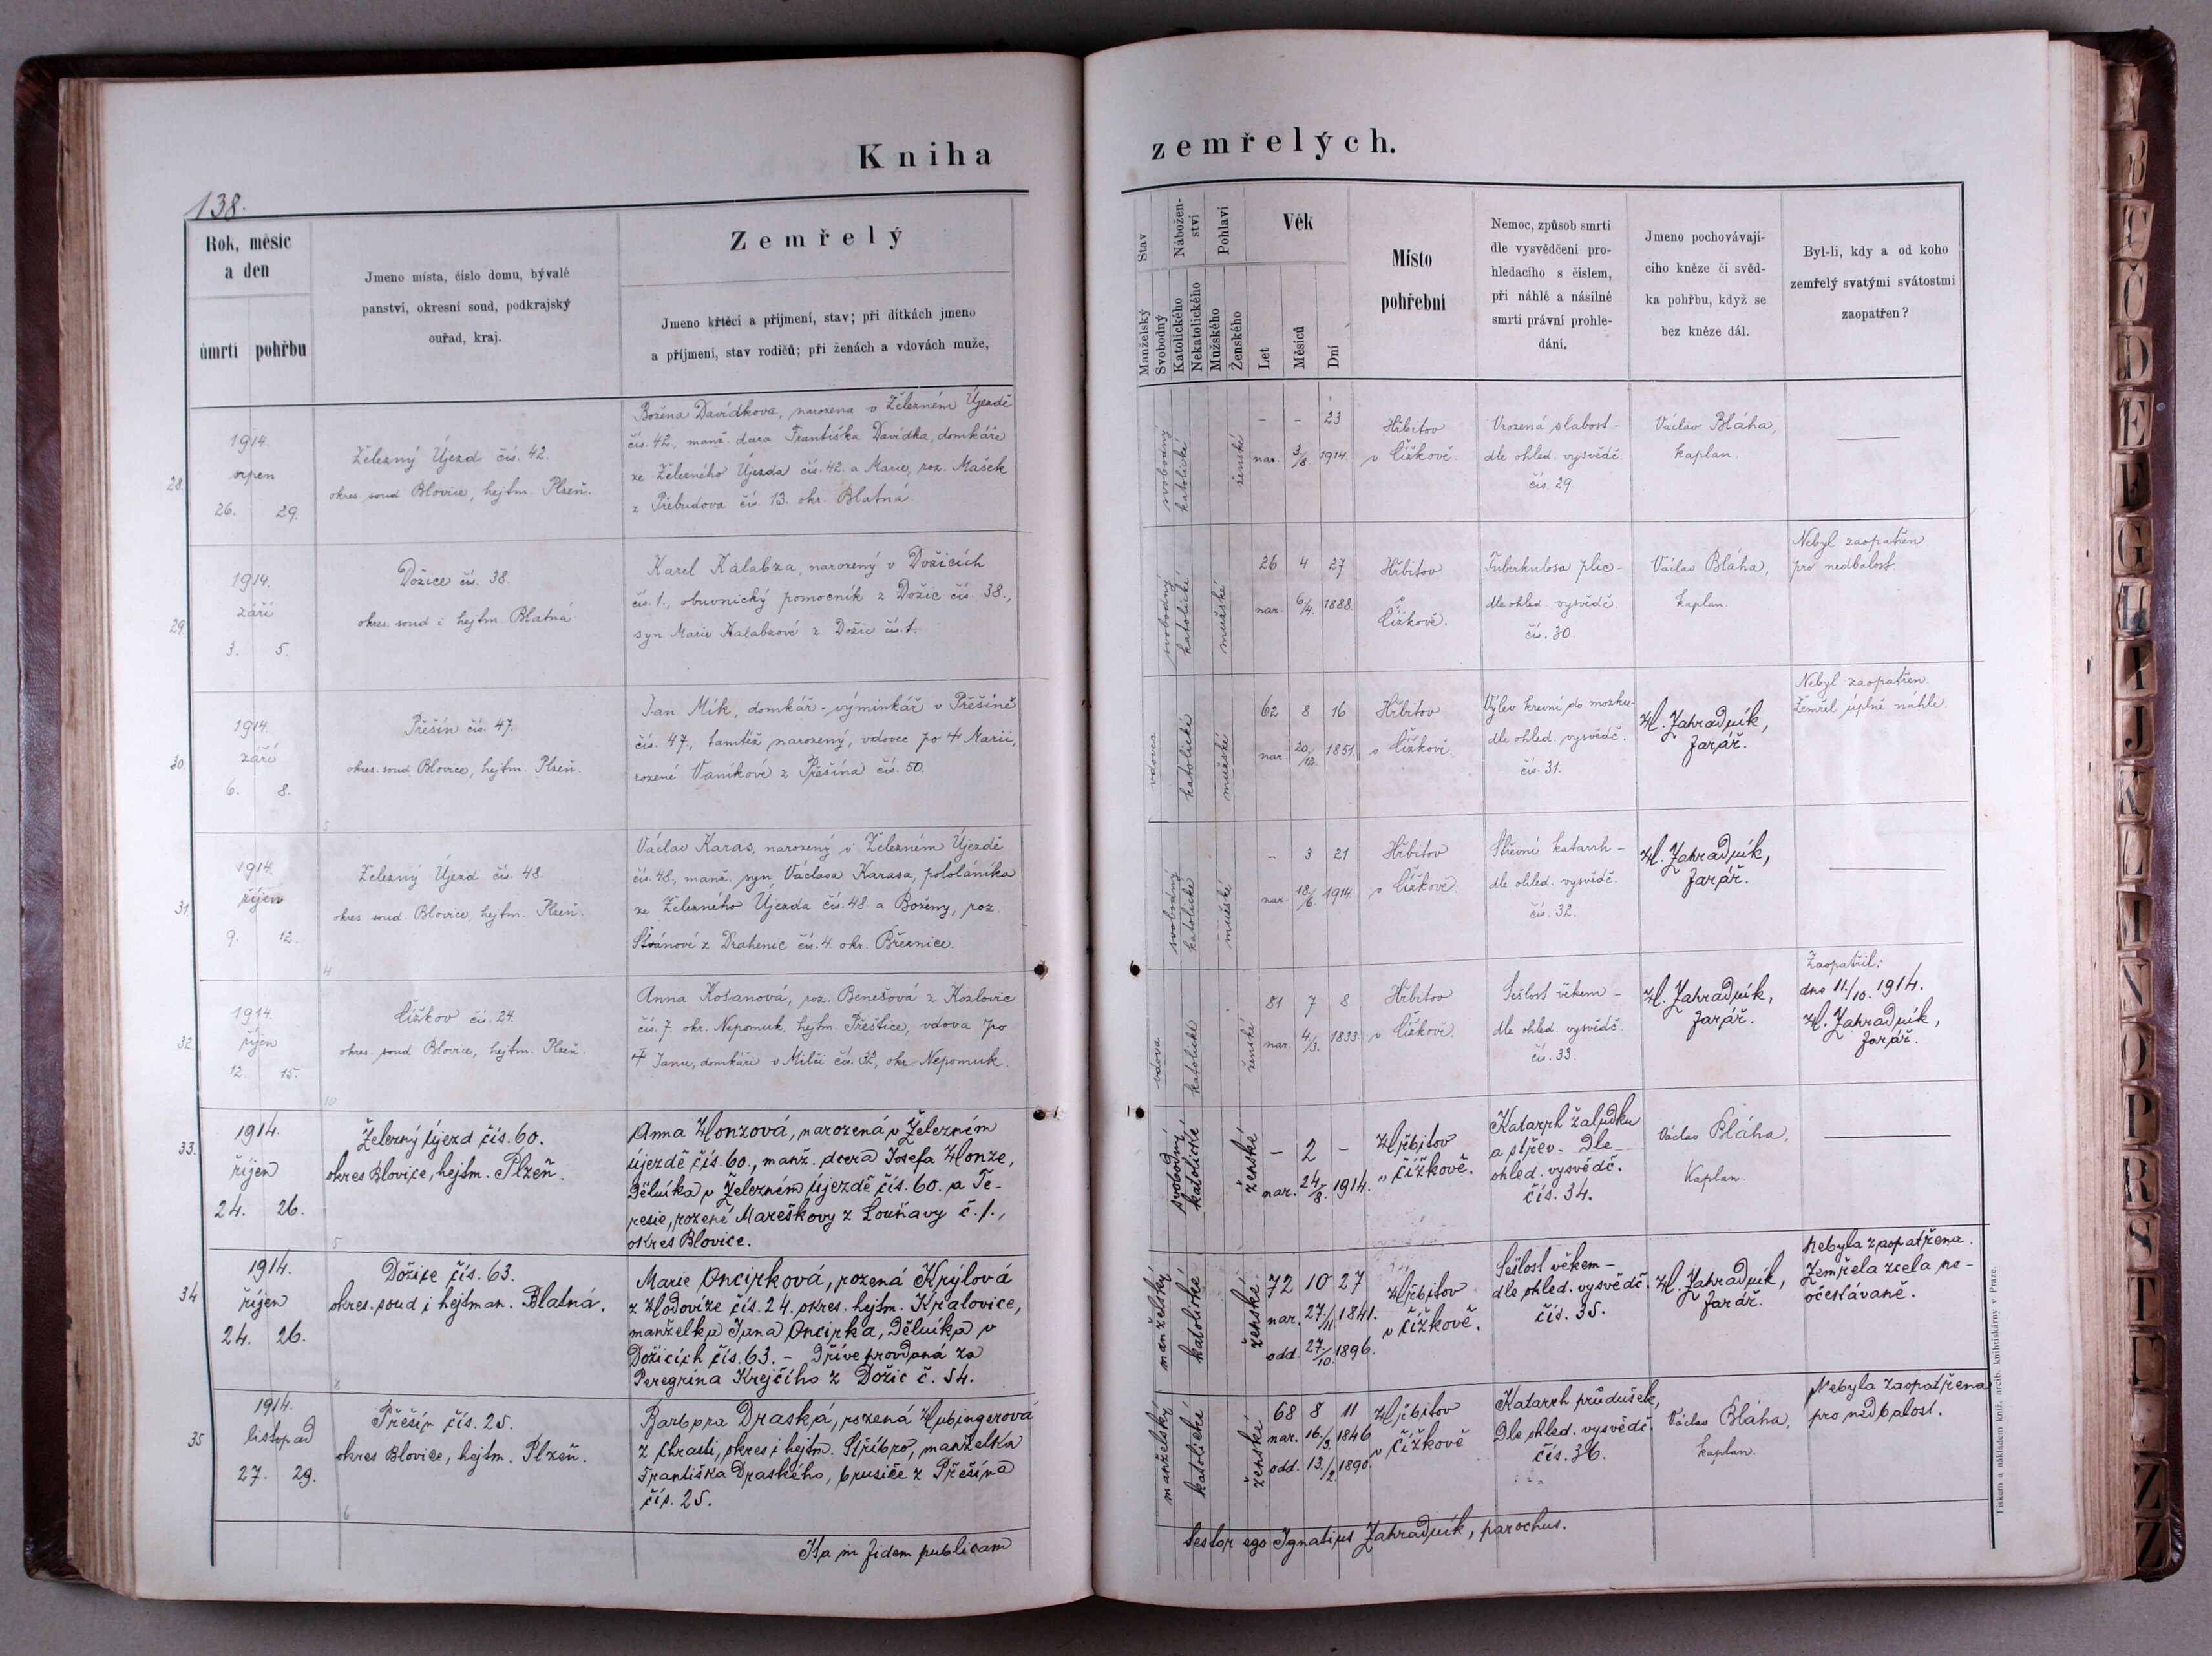 Kniha
zemřelých.
138.
Rok, měsíc
a den
úmrtí pohřbu
Jmeno místa, číslo domu, bývalé
panství, okresní soud, podkrajský
ouřad, kraj.
Zemřelý
Jmeno křtěcí a příjmení, stav; při dítkách jmeno
a příjmení, stav rodičů; při ženách a vdovách muže,
Stav
Manželský
Svobodný
Nábožen-
ství
Katolického
Nekatolického
Pohlaví
Mužského
Ženského
Věk
Let
Měsíců
Dní
Místo
pohřební
Nemoc, způsob smrti
dle vysvědčení pro-
hledacího s číslem,
při náhlé a násilné
smrti právní prohle-
dání.
Jmeno pochovávají-
cího kněze či svěd-
ka pohřbu, když se
bez kněze dál.
Byl-li, kdy a od koho
zemřelý svatými svátostmi
zaopatřen?
28.
1914.
srpen
26. 29.
Železný Újezd čís. 42.
okres. soud Blovice, hejtm. Plzeň.
Božena Davídkova, narozena v Železném Újezdě
čís. 42., manž. dcera Františka Davídka, domkáře
ze Železného Újezda čís. 42. a Marie, roz. Mašek
z Přebudova čís. 13. okr. Blatná.
svobodný
katolické
ženské
- - 23
nar. 3/8 1914.
Hřbitov
v Čížkově.
Vrozená slabost -
dle ohled. vysvědč.
čís. 29.
Václav Bláha,
kaplan.
29.
1914.
září
3. 5.
Dožice čís. 38.
okres. soud i hejtm. Blatná
Karel Kalabza, narozený v Dožicích
čís. 1., obuvnický pomocník z Dožic čís. 38.,
syn Marie Kalabzové z Dožic čís. 1.
svobodný
katolické
mužské
26 4 27
nar. 6/4. 1888.
Hřbitov
v
Čížkově.
Tuberkulosa plic -
dle ohled. vysvědč.
čís. 30.
Václav Bláha,
kaplan.
Nebyl zaopatřen
pro nedbalost.
30.
1914.
září
6. 8.
Přešín čís. 47.
okres. soud Blovice, hejtm. Plzeň.
5
Jan Mík, domkář - výminkář v Přešíně
čís. 47., tamtéž narozený, vdovec po † Marii,
rozené Vaníkové z Přešína čís. 50.
vdovec
katolické
mužské
62 8 16
nar. 20/12. 1851.
Hřbitov
v Čížkově.
Výlev krevní do mozku-
dle ohled. vysvědč.
čís. 31.
H. Zahradník,
farář.
Nebyl zaopatřen.
Zemřel úplně náhle.
31.
1914.
říjen
9. 12.
Železný Újezd čís. 48.
okres. soud. Blovice, hejtm. Plzeň.
4
Václav Karas, narozený v Železném Újezdě
čís. 48., manž. syn Václava Karasa, pololáníka
ze Železného Újezda čís. 48. a Boženy, roz.
Štvánové z Drahenic čís. 4. okr. Březnice.
svobodný
katolické
mužské
- 3 21
nar. 18/6. 1914.
Hřbitov
v Čížkově.
Střevní katarrh -
dle ohled. vysvědč.
čís. 32.
H. Zahradník,
farář.
32.
1914.
říjen
12. 15.
Čížkov čís. 24.
okres. soud Blovice, hejtm. Plzeň.
10
Anna Košanová, roz. Benešová z Kozlovic
čís. 7. okr. Nepomuk, hejtm. Přeštice, vdova po
† Janu, domkáři v Milči čís. 32., okr. Nepomuk.
vdova
katolické
ženské
81 7 8
nar. 4/3. 1833.
Hřbitov
v Čížkově.
Sešlost věkem -
dle ohled. vysvědč.
čís. 33.
H. Zahradník,
farář.
Zaopatřil:
dne 11./10. 1914.
H. Zahradník,
farář.
33.
1914.
říjen
24. 26.
Železný Újezd čís. 60.
okres Blovice, hejtm. Plzeň.
5
Anna Honzová, narozená v Železném
Újezdě čís. 60., manž. dcera Josefa Honze,
dělníka v Železném Újezdě čís. 60. a Te-
resie, rozené Mareškovy z Louňavy č. 1.,
okres Blovice.
svobodný
katolické
ženské
- 2 -
nar. 24/8. 1914.
Hřbitov
v Čížkově.
Katarrh žaludku
a střev - Dle
ohled. vysvědč.
čís. 34.
Václav Bláha,
Kaplan.
34
1914.
říjen
24. 26.
Dožice čís. 63.
okres. soud i hejtman. Blatná.
8
Marie Oncirková, rozená Krýlová
z Hodovíze čís. 24. okres. hejtm. Kralovice,
manželka Jana Oncirka, dělníka v
Dožicích čís. 63. - Dříve provdaná za
Peregrina Krejčího z Dožic č. 54.
manželský
katolické
ženské
72 10 27
nar. 27/11. 1841.
odd. 27/10. 1896.
Hřbitov
v Čížkově.
Sešlost věkem -
dle ohled. vysvědč.
čís. 35.
H. Zahradník,
farář.
Nebyla zaopatřena.
Zemřela zcela ne-
očekávaně.
35
1914.
listopad
27. 29.
Přešín čís. 25.
okres Blovice, hejtm. Plzeň.
6
Barbora Draská, rozená Hubingerová
z Chrasti, okres i hejtm. Stříbro, manželka
Františka Draského, brusiče z Přešína
čís. 25.
manželský
katolické
ženské
68 8 11
nar. 16./3. 1846
odd. 13./2. 1890.
Hřbitov
v Čížkově
Katarrh průdušek,
Dle ohled. vysvědč.
čís. 36.
Václav Bláha,
kaplan.
Nebyla zaopatřena
pro nedbalost.
Ita in fidem publicam
testor ego Ignatius Zahradník, parochus.
Tiskem a nákladem kníž. arcib. knihtiskárny v Praze.
B
C
Č
D
E
F
G
H
I
J
K
L
M
N
O
P
R
S
T
U
Z
Z